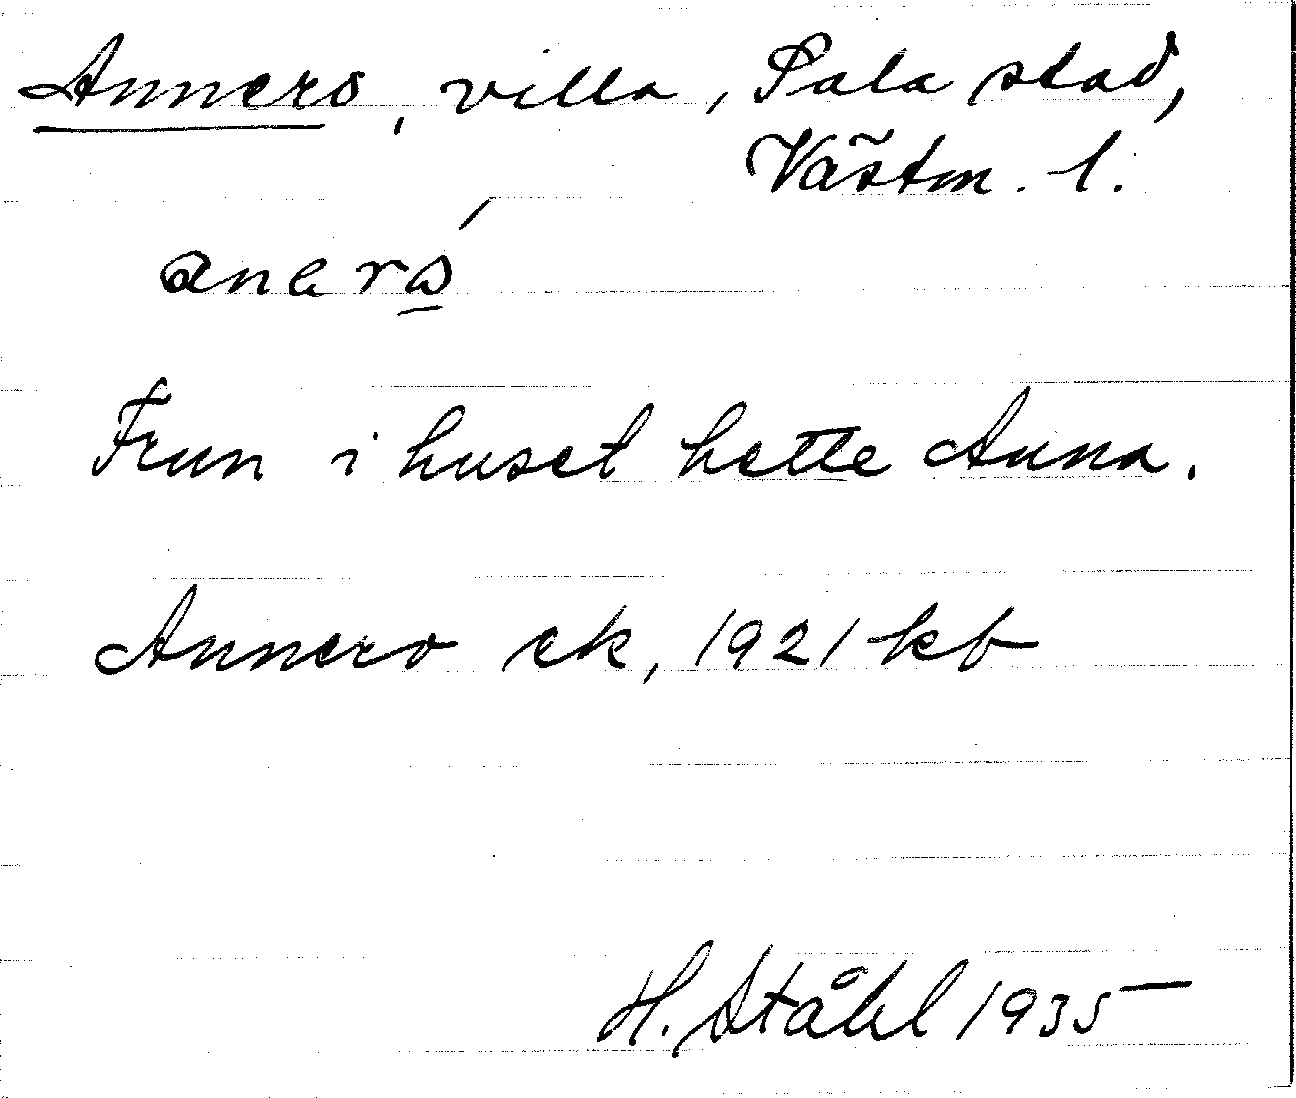 Annero, villa, Sala stad,
Västm. l.
Frun i huset hette Anna.
Annero ek, 1921 kb
H. Ståhl 1935